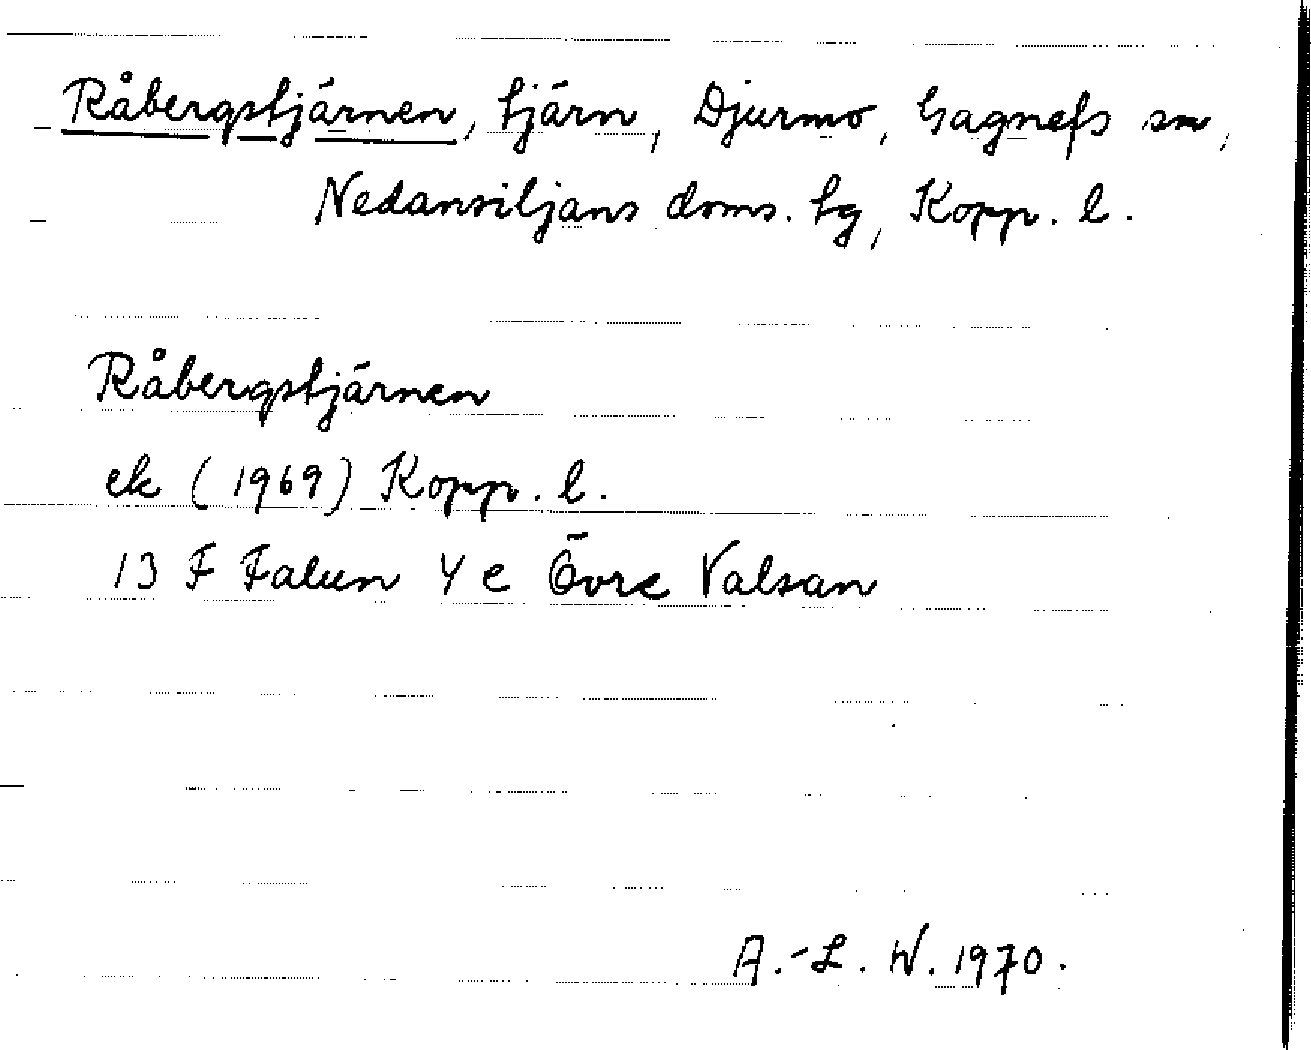 Råbergstjärnen, tjärn, Djurmo, Gagnefs sn,
Nedansiljans doms. tg, Kopp. l.
Råbergstjärnen
ek (1969) Kopp. l.
13 F Falun 4 e Övre Valsan
A.-L. W. 1970.